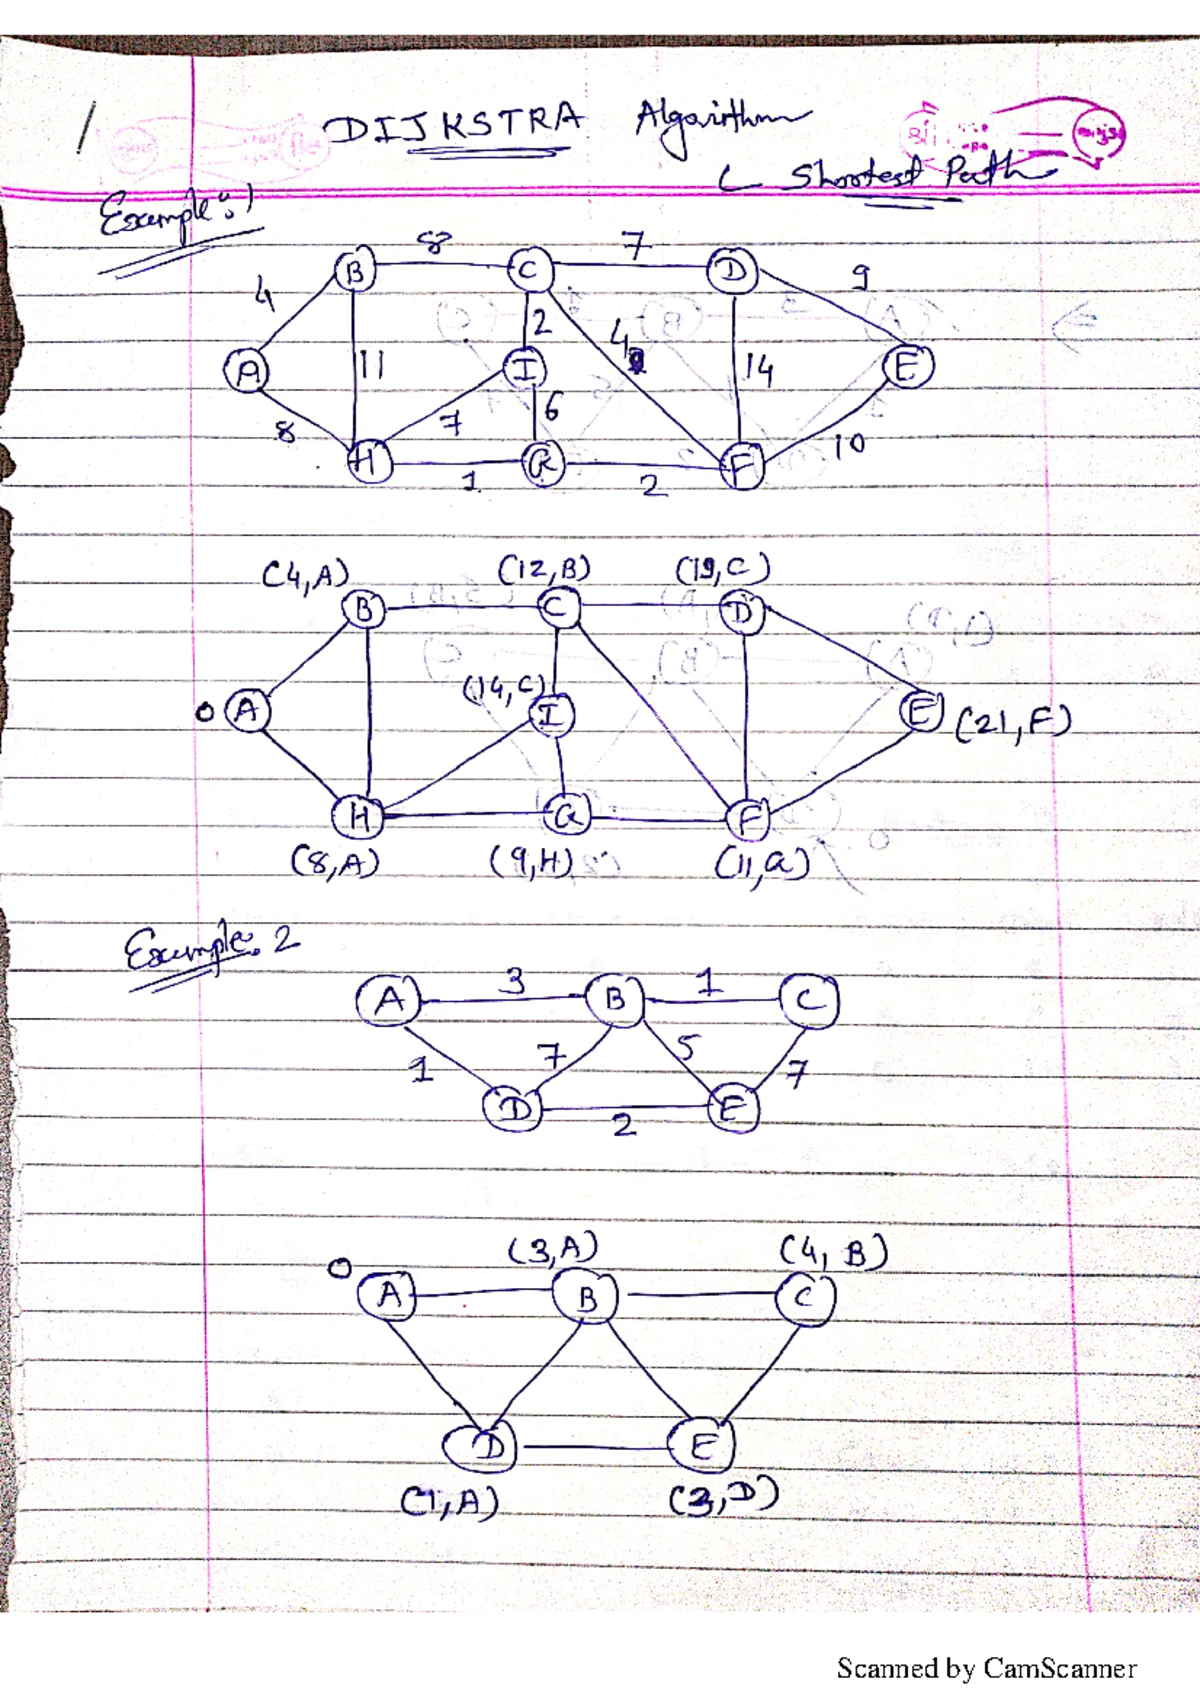 1
DIJKSTRA Algorithm
Shortest Path
Example: 1
8 7
B C D
4 9
2
A 11 I 4 14 E
8 7 6 10
H G F
1 2
(4,A) (12,B) (19,C)
B C D
(14,C)
0 A I E (21,F)
H G F
(8,A) (9,H) (11,G)
Example: 2
3 1
A B C
1 7 5 7
D E
2
(3,A) (4, B)
0
A B C
D E
(1,A) (3,D)
Scanned by CamScanner